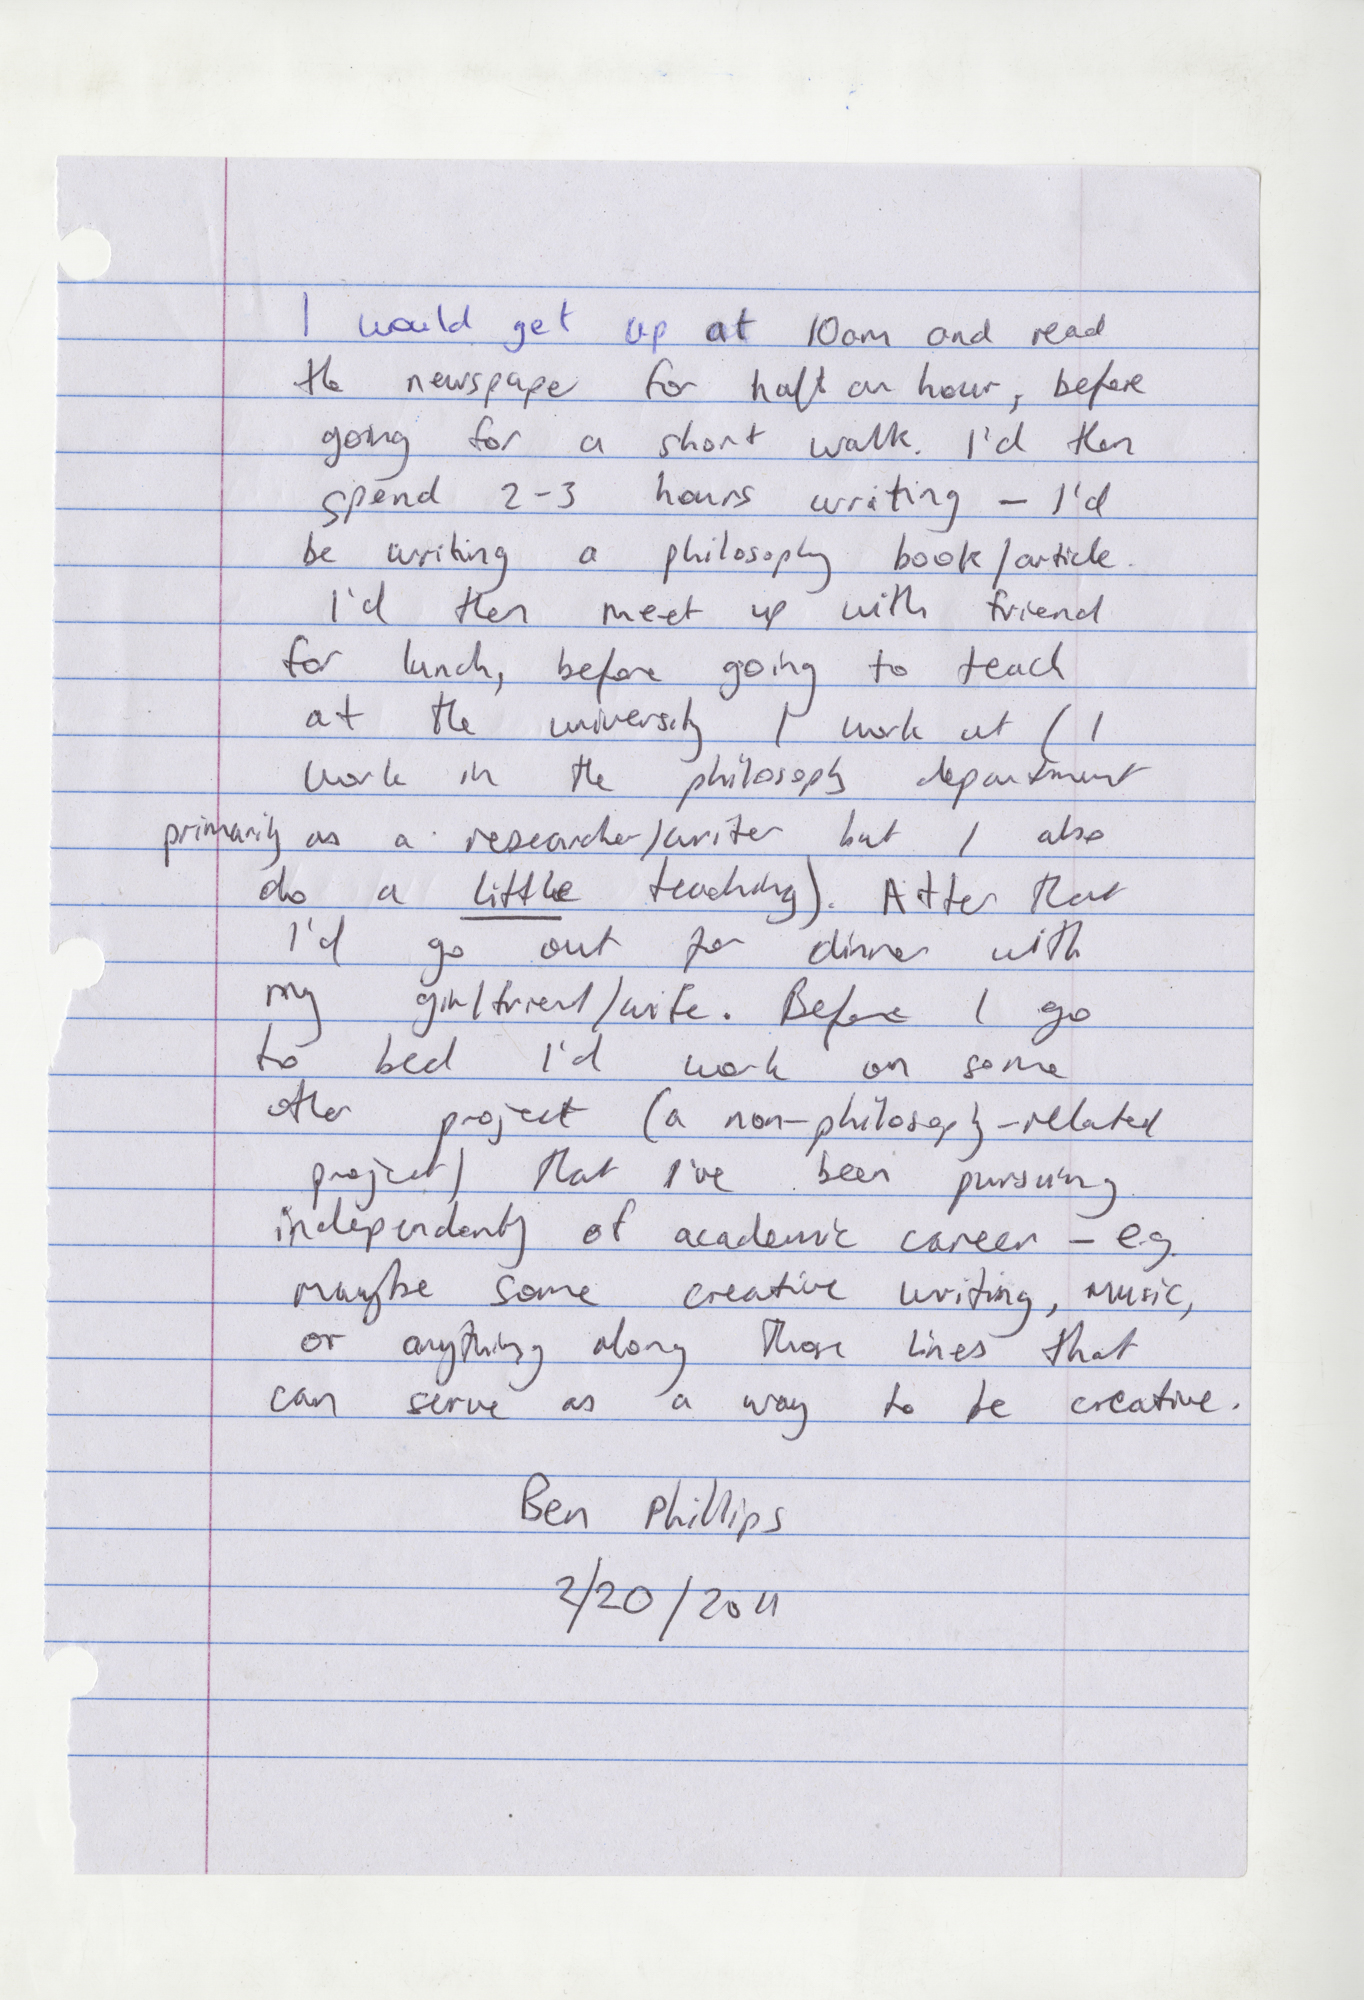 I would get up at 10am and read
the newspaper for half an hour, before
going for a short walk. I'd then
spend 2-3 hours writing – I'd
be writing a philosophy book/article.
I'd then meet up with friend
for lunch, before going to teach
at the university I work at (I
work in the philosophy department
primarily as a researcher/writer but I also
do a little teaching). After that
I'd go out for dinner with
my girlfriend/wife. Before I go
to bed I'd work on some
other project (a non-philosophy-related
project) that I've been pursuing
independently of academic career – e.g.
maybe some creative writing, music,
or anything along those lines that
can serve as a way to be creative.
Ben Phillips
2/20/2011